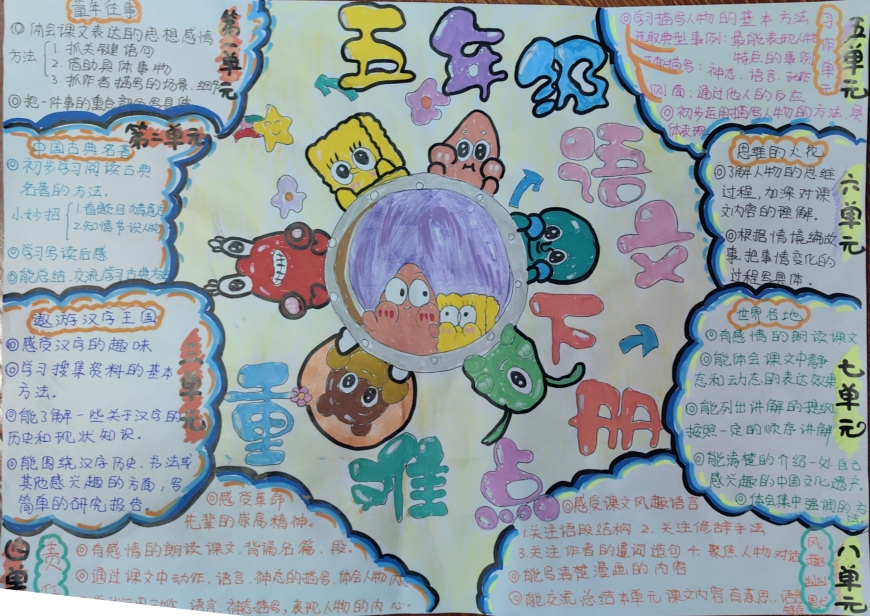 五年级
语文下册
重难点
第一单元
童年往事
◎体会课文表达的思想感情
方法
1.抓关键语句
2.借助具体事物
3.抓作者描写的场景、细节
◎把一件事的重点部分写具体
第二单元
中国古典名著
◎初步学习阅读古典
名著的方法。
小妙招
1.看题目猜意思
2.知情节识人物
◎学习写读后感
◎能总结、交流学习古典名著
三单元
遨游汉字王国
◎感受汉字的趣味
◎学习搜集资料的基本
方法。
◎能了解一些关于汉字的
历史和现状知识。
◎能围绕汉字历史、书法或
其他感兴趣的方面,写
简单的研究报告。
四单
责
◎感受革命
先辈的崇高精神。
◎有感情的朗读课文、背诵名篇、段。
◎通过课文中动作、语言、神态的描写,体会人物内
语言、神态描写,表现人物的内心。
五单元
习作单元
◎学习描写人物的基本方法
选取典型事例:最能表现人物
特点的事例
正面描写:神态、语言、动作
侧面:通过他人的反应
◎初步运用描写人物的方法,具
体表现
六单元
思维的火花
◎了解人物的思维
过程,加深对课
文内容的理解。
◎根据情境编故
事,把事情变化的
过程写具体。
七单元
世界各地
◎有感情的朗读课文
◎能体会课文中静
态和动态的表达效果
◎能列出讲解的提纲
按照一定的顺序讲解
◎能清楚的介绍一处自己
感兴趣的中国文化遗产。
◎体会集中强调的方
法。
八单元
风趣幽
◎感受课文风趣语言
1.关注语段结构 2.关注修辞手法
3.关注作者的遣词造句 4.聚焦人物对话
◎能写清楚漫画的内容
◎能交流总结本单元课文内容有意思、语言